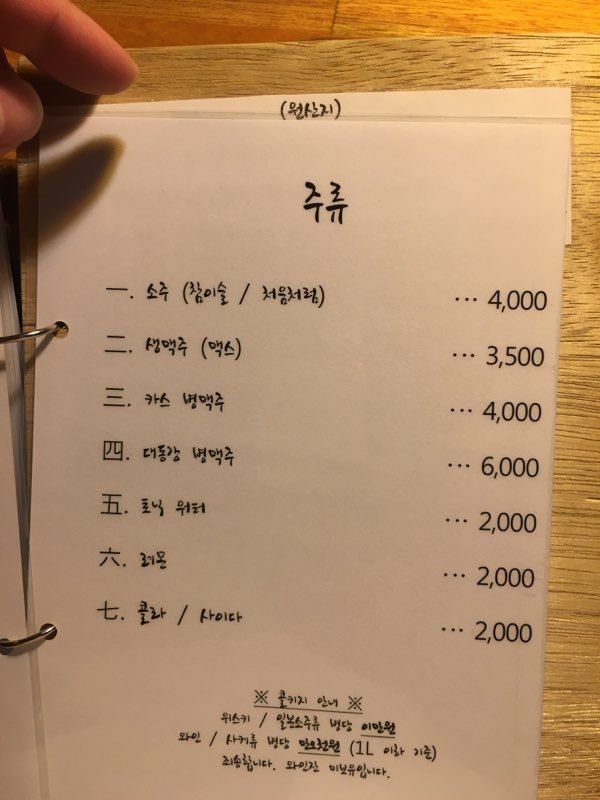 (원산지)
주류
一. 소주 (참이슬 / 처음처럼) ... 4,000
二. 생맥주 (맥스) ... 3,500
三. 카스 병맥주 ... 4,000
四. 대동강 병맥주 ... 6,000
五. 토닉 워터 ... 2,000
六. 레몬 ... 2,000
七. 콜라 / 사이다 ... 2,000
※ 콜키지 안내 ※
위스키 / 일본소주류 병당 이만원
와인 / 사케류 병당 만오천원 (1L 이하 기준)
죄송합니다. 와인잔 미보유입니다.